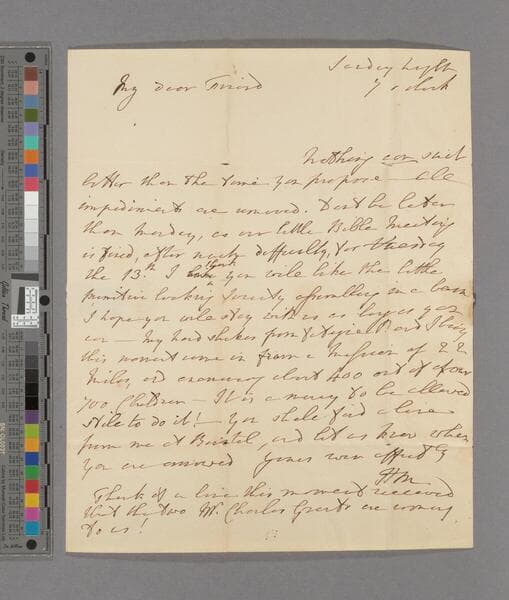 Sunday night
7 o clock
My dear Friend
Nothing can suit
better than the time you propose All
impediments are removed. Dont be later
than Monday, as our little Bible Meeting
is fixed, after much difficulty, for Tuesday
the 13th I think you will like the little
primitive looking Society assembling in a barn
I hope you will stay with us as long as you
can — My hand shakes from fatigue and I have
this moment come in from a Mission of 22
Miles, and examining about 400 out of
700 Children — It is a mercy to be allowed
still to do it! — You shall find a line
from me at Bristol, and let us know when
you are
yours most affectly
HM
I have this moment received
that the two Mr. Charles Grants are coming
to us!